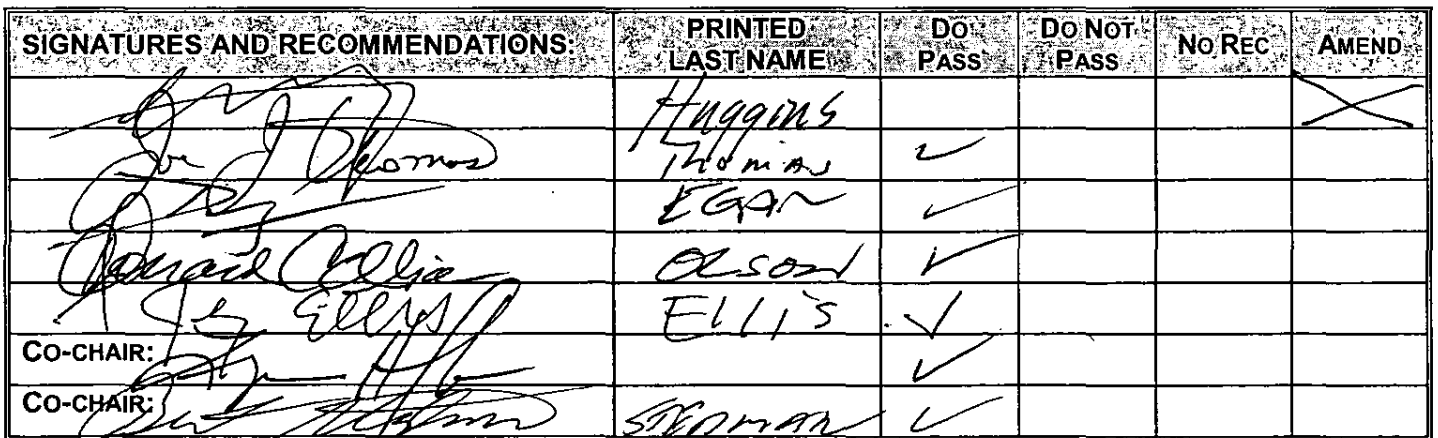 SIGNATURES AND RECOMMENDATIONS: PRINTED LAST NAME DO PASS DO NOT PASS NO REC AMEND
Huggins X
Joe J Thomas Thomas ✓
EGAN ✓
OLSON ✓
Ellis ELLIS ✓
CO-CHAIR: ✓
CO-CHAIR: STEDMAN ✓